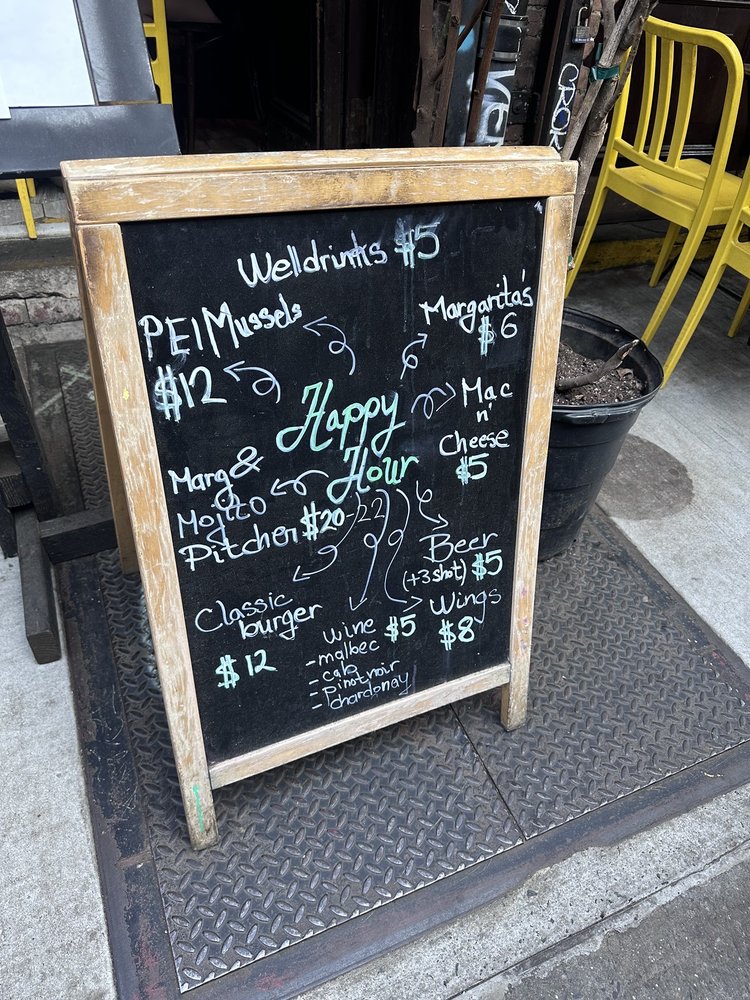 Welldrinks $5
PEI Mussels
$12
Margarita's
$6
Happy
Hour
Mac
n'
Cheese
$5
Marg &
Mojito
Pitcher $20-22
Beer
(+3 shot) $5
Wings
$8
Classic
burger
$12
Wine $5
- malbec
- cab
- pinot noir
- chardonay
CROK